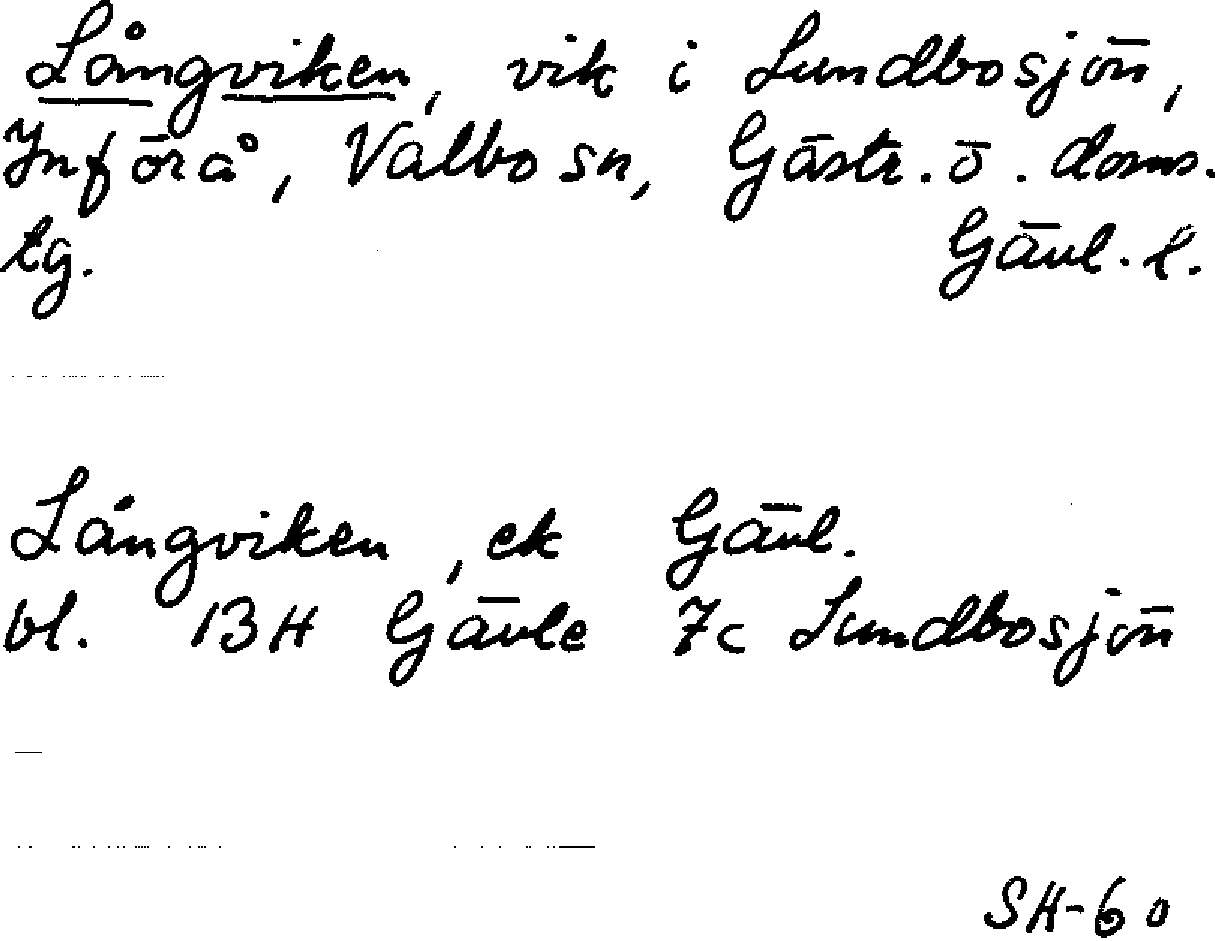 Långviken, vik i Lundbosjön,
Införå, Valbo sn, Gästr. ö. doms.
tg. Gävl. l.
Långviken, ek Gävl.
bl. 13H Gävle 7c Lundbosjön
SH-60